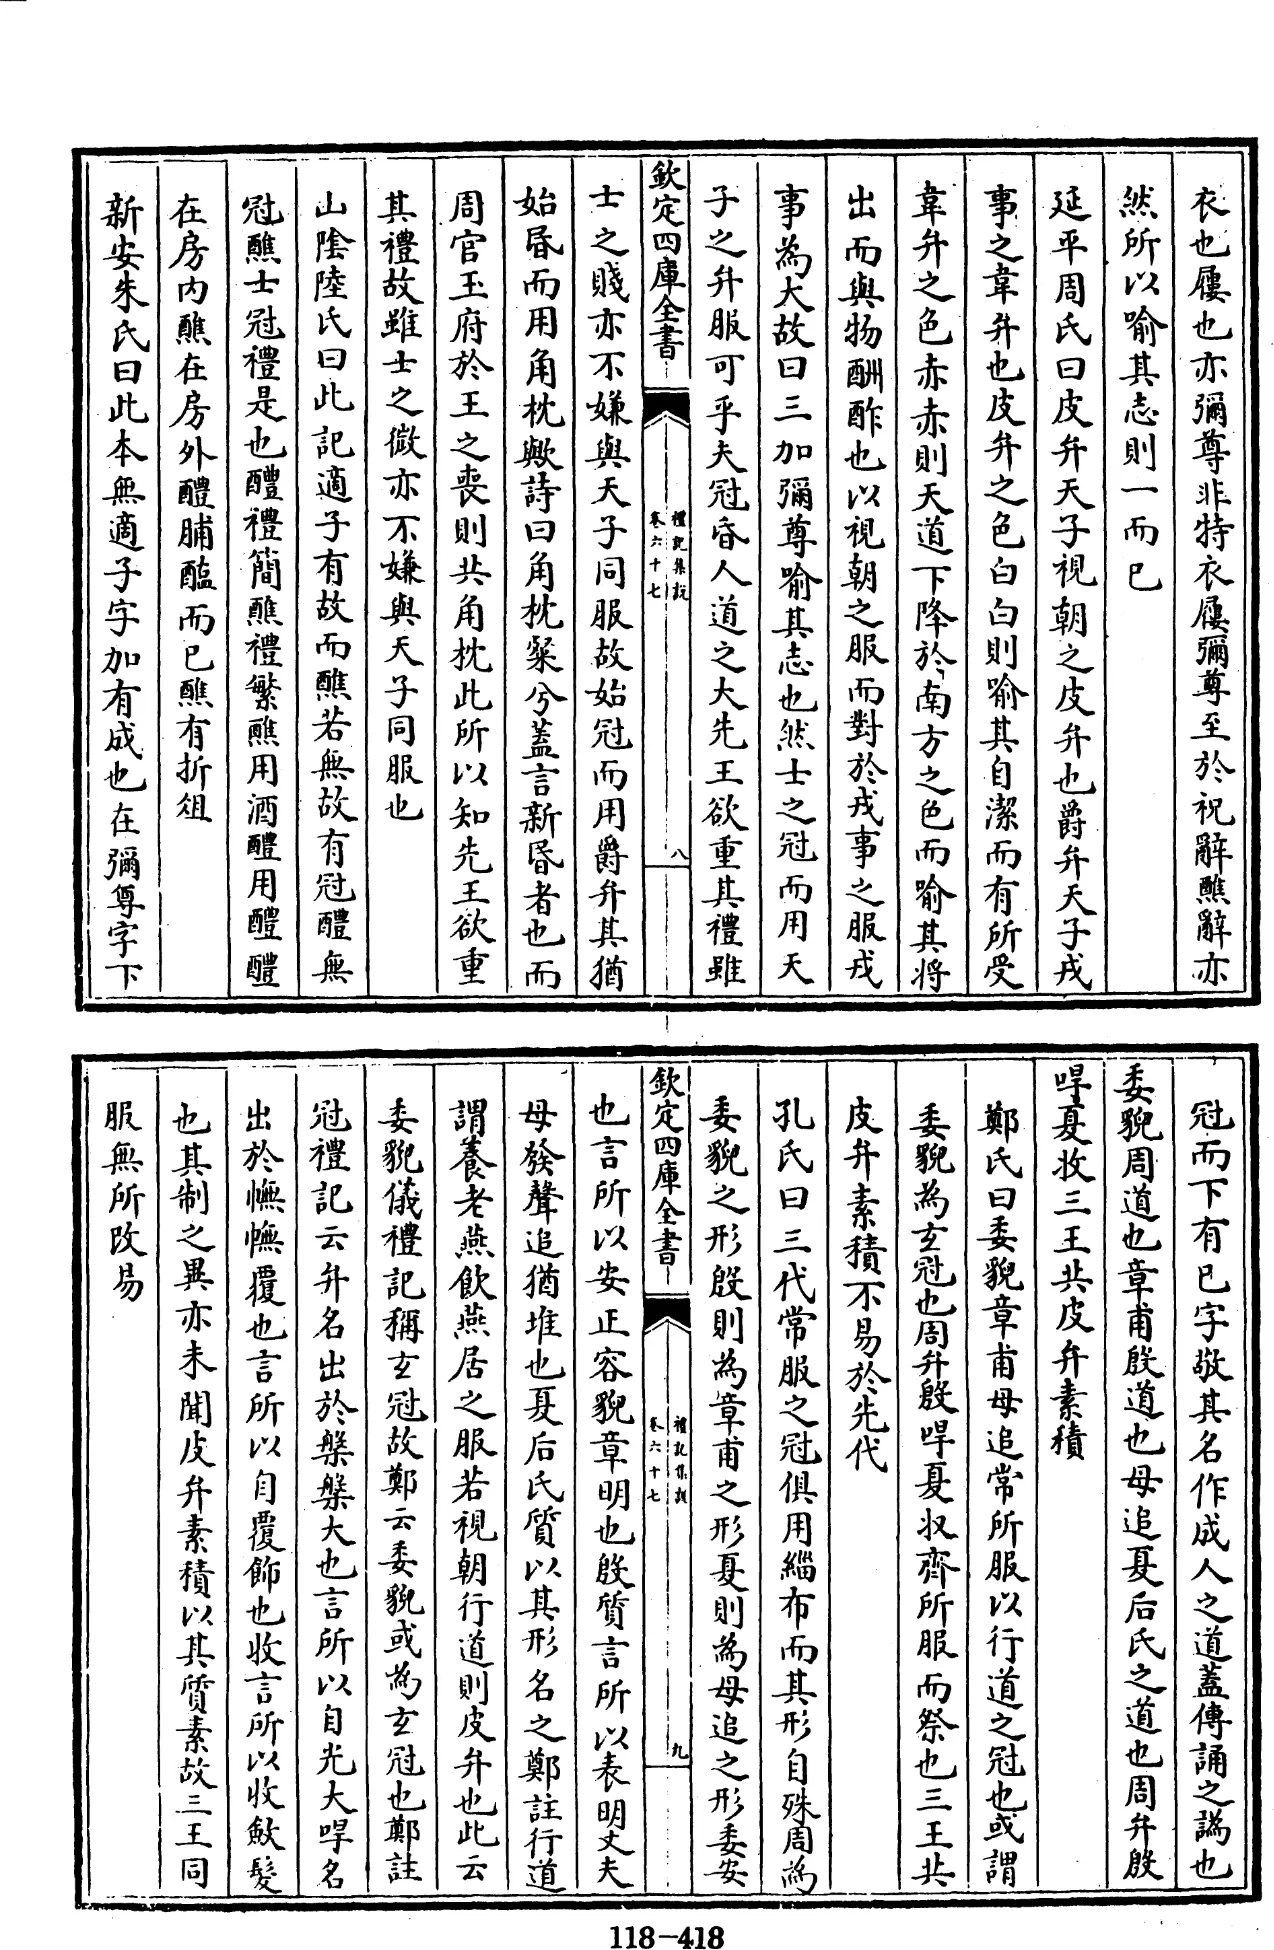 衣也屨也亦彌尊非特衣屨彌尊至於祝辭醮辭亦
然所以喻其志則一而已
延平周氏曰皮弁天子視朝之皮弁也爵弁天子戎
事之韋弁也皮弁之色白白則喻其自潔而有所受
韋弁之色赤赤則天道下降於南方之色而喻其將
出而與物酬酢也以視朝之服而對於戎事之服戎
事為大故曰三加彌尊喻其志也然士之冠而用天
子之弁服可乎夫冠昏人道之大先王欲重其禮雖
欽定四庫全書
禮記集説
卷六十七
八
士之賤亦不嫌與天子同服故始冠而用爵弁其猶
始昏而用角枕歟詩曰角枕粲兮蓋言新昏者也而
周官玉府於王之喪則共角枕此所以知先王欲重
其禮故雖士之微亦不嫌與天子同服也
山陰陸氏曰此記適子有故而醮若無故有冠醴無
冠醮士冠禮是也醴禮簡醮禮繁醮用酒醴用醴醴
在房内醮在房外醴脯醢而已醮有折俎
新安朱氏曰此本無適子字加有成也在彌尊字下
冠而下有已字敬其名作成人之道蓋傳誦之譌也
委貌周道也章甫殷道也母追夏后氏之道也周弁殷
冔夏收三王共皮弁素積
鄭氏曰委貌章甫母追常所服以行道之冠也或謂
委貌為玄冠也周弁殷冔夏收齊所服而祭也三王共
皮弁素積不易於先代
孔氏曰三代常服之冠俱用緇布而其形自殊周為
委貌之形殷則為章甫之形夏則為母追之形委安
欽定四庫全書
禮記集説
卷六十七
九
也言所以安正容貌章明也殷質言所以表明丈夫
母發聲追猶堆也夏后氏質以其形名之鄭註行道
謂養老燕飲燕居之服若視朝行道則皮弁也此云
委貌儀禮記稱玄冠故鄭云委貌或為玄冠也鄭註
冠禮記云弁名出於槃槃大也言所以自光大冔名
出於幠幠覆也言所以自覆飾也收言所以收斂髮
也其制之異亦未聞皮弁素積以其質素故三王同
服無所改易
118-418